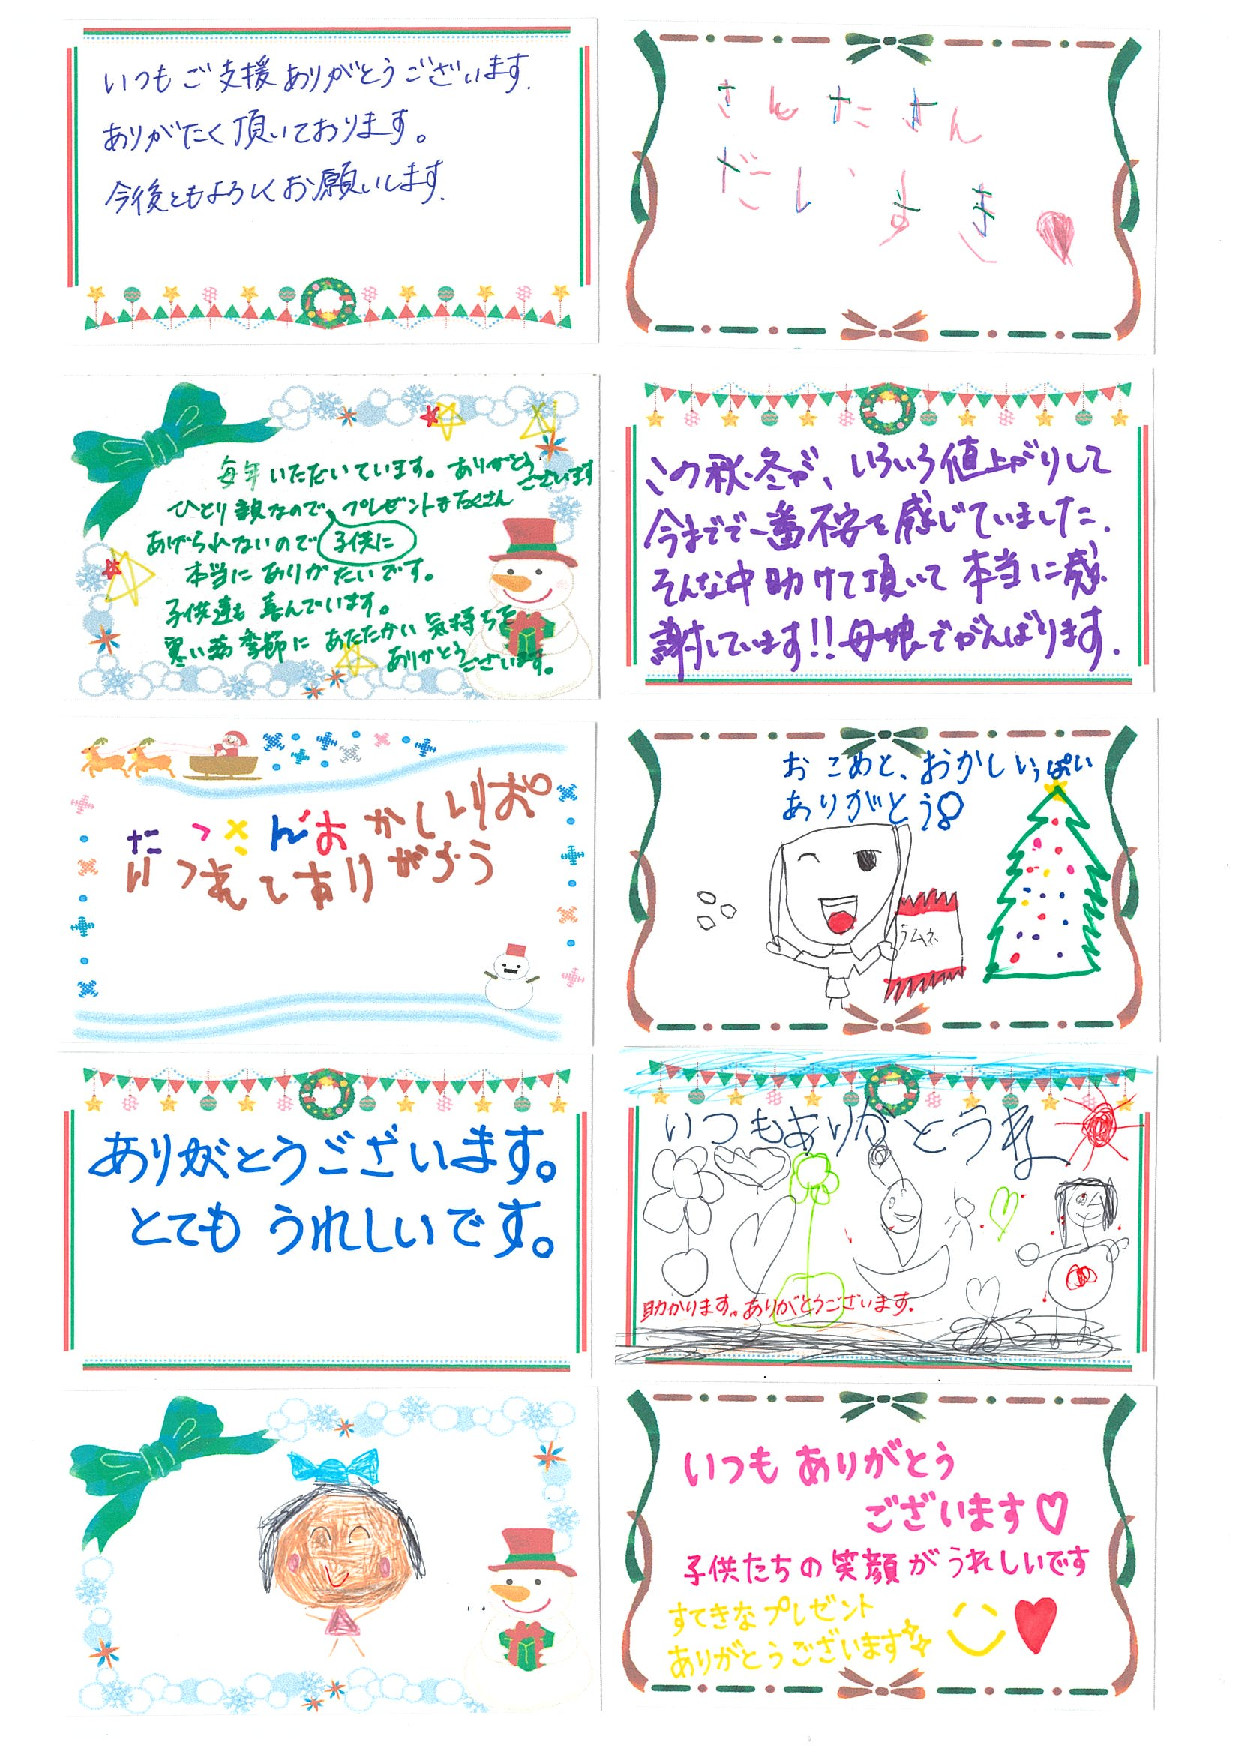 いつもご支援ありがとうございます.
ありがたく頂いております。
今後ともよろしくお願いします.
さんたさん
だいすき
毎年いただいています。ありがとう
ございます
ひとり親なので、プレゼントをたくさん
あげられないので子供に
本当にありがたいです。
子供達も喜んでいます。
寒い季節にあたたかい気持ちを
ありがとうございます。
この秋・冬が、いろいろ値上がりして
今までで一番不安を感じていました.
そんな中助けて頂いて本当に感
謝しています!!母娘でがんばります.
たつさんおかしいりお
いつれてありがとう
おこめと、おかしいっぱい
ありがとう!
ラムネ
ありがとうございます。
とてもうれしいです。
いつもありがとうね
助かります。ありがとうございます.
いつもありがとう
ございます♡
子供たちの笑顔がうれしいです
すてきなプレゼント
ありがとうございます